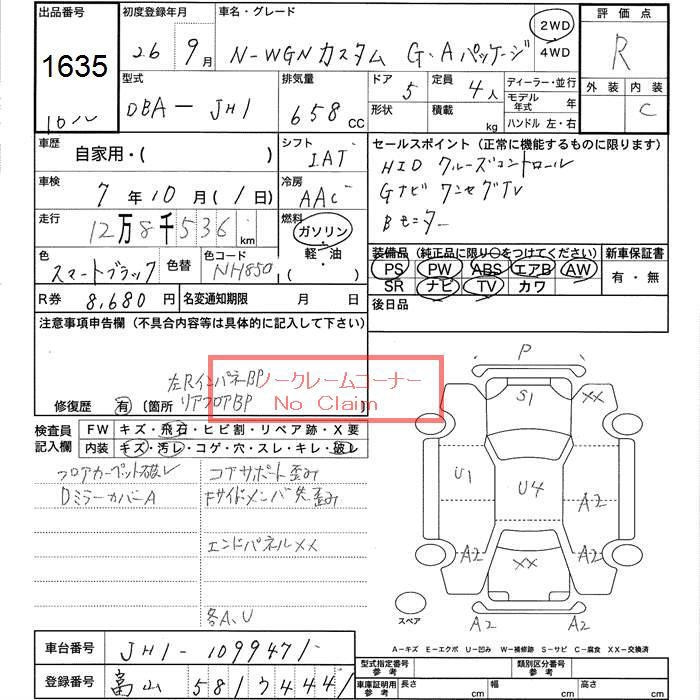 出品番号
1635
初度登録年月
26 9月
車名・グレード
N-WGN カスタム G・Aパッケージ
2WD
4WD
評価点
R
外装 内装
C
型式
DBA-JH1
排気量
658 CC
ドア
5
形状
定員
4人
積載
kg
ディーラー・並行
モデル年式 年
ハンドル 左・右
車歴
自家用・( )
シフト
IAT
セールスポイント(正常に機能するものに限ります)
HID クルーズコントロール
Gナビ ワンセグTV
Bモニター
車検
7年10月( 1日)
冷房
AAC
走行
12万8千536km
燃料
ガソリン
・
軽・油
( )
色
スマートブラック
色替
色コード
NH850
装備品(純正品に限り○をつけてください)
PS PW ABS エアB AW
SR ナビ TV カワ
新車保証書
有・無
R券 8,680円
名変通知期限 月 日
後日品
注意事項申告欄(不具合内容等は具体的に記入して下さい)
左RインパネBP
修復歴 有(箇所 リアフロアBP )
ノークレームコーナー
No Claim
検査員記入欄
FW キズ・飛石・ヒビ割・リペア跡・X要
内装 キズ・汚レ・コゲ・穴・スレ・キレ・破レ
フロアカーペット破レ
DミラーカバーA
コアサポート歪み
Fサイドメンバ先歪み
エンドパネルXX
各A、U
P
S1
XX
U1
U4
A2
A2
A2
XX
A2
A2
スペア
A-キズ E-エクボ U-凹み W-補修跡 S-サビ C-腐食 XX-交換済
車台番号 JH1-1099471
登録番号 富山 581 7444
型式指定番号 参考
類別区分番号 参考
車庫証明用 参考
長さ cm
幅 cm
高さ cm